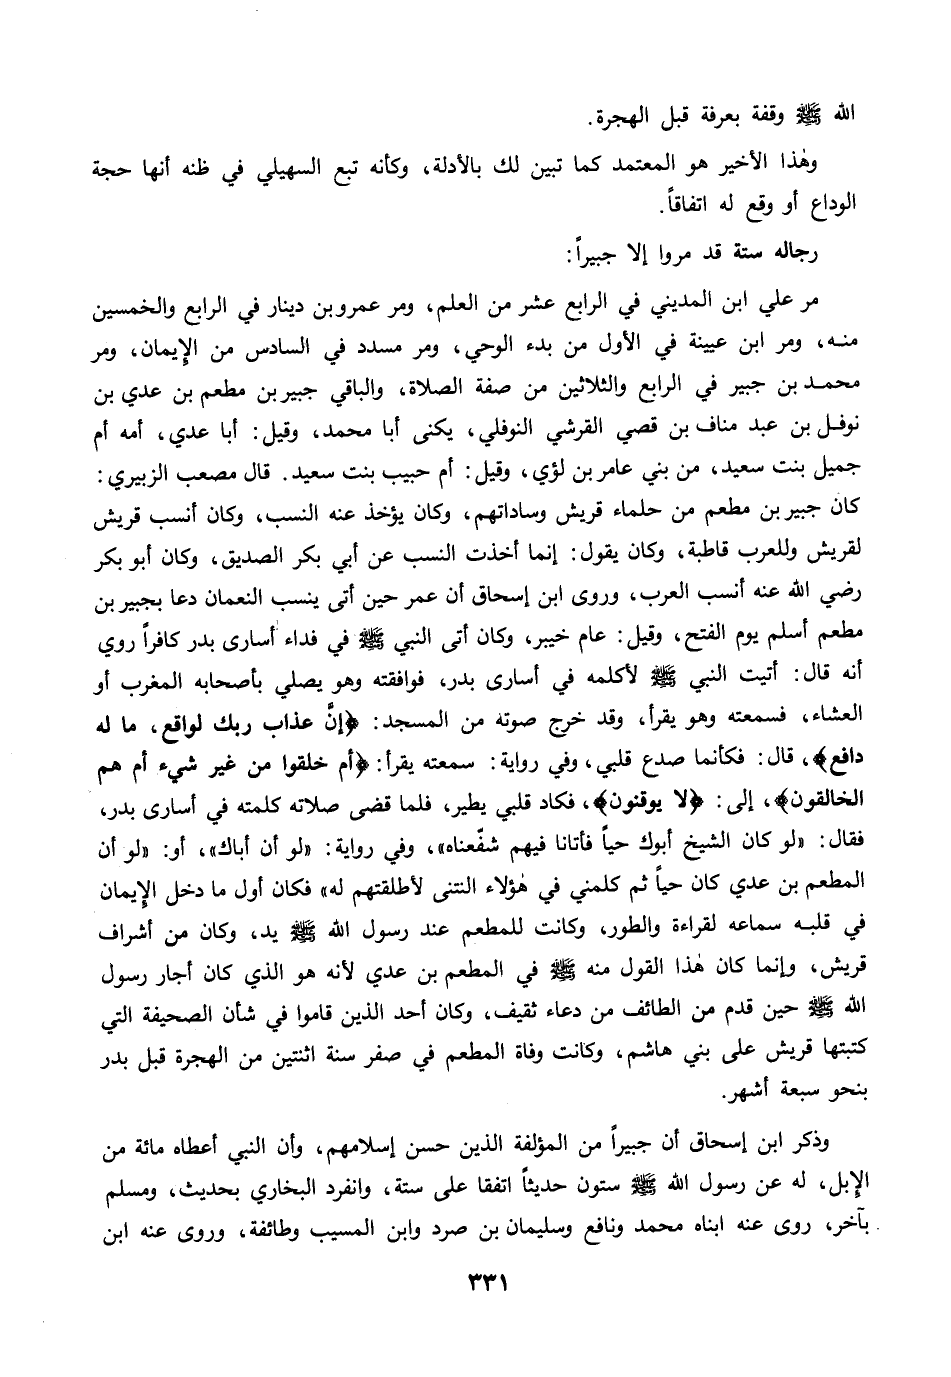 الله ﷺ وقفة بعرفة قبل الهجرة.
وهٰذا الأخير هو المعتمد كما تبين لك بالأدلة، وكأنه تبع السهيلي في ظنه أنها حجة
الوداع أو وقع له اتفاقاً.
رجاله ستة قد مروا إلا جبيراً:
مر علي ابن المديني في الرابع عشر من العلم، ومر عمرو بن دينار في الرابع والخمسين
منه، ومر ابن عيينة في الأول من بدء الوحي، ومر مسدد في السادس من الإيمان، ومر
محمد بن جبير في الرابع والثلاثين من صفة الصلاة، والباقي جبير بن مطعم بن عدي بن
نوفل بن عبد مناف بن قصي القرشي النوفلي، يكنى أبا محمد، وقيل: أبا عدي، أمه أم
جميل بنت سعيد، من بني عامر بن لؤي، وقيل: أم حبيب بنت سعيد. قال مصعب الزبيري:
كان جبير بن مطعم من حلماء قريش وساداتهم، وكان يؤخذ عنه النسب، وكان أنسب قريش
لقريش وللعرب قاطبة، وكان يقول: إنما أخذت النسب عن أبي بكر الصديق، وكان أبو بكر
رضي الله عنه أنسب العرب، وروى ابن إسحاق أن عمر حين أتى ينسب النعمان دعا بجبير بن
مطعم أسلم يوم الفتح، وقيل: عام خيبر، وكان أتى النبي ﷺ في فداء أسارى بدر كافراً روي
أنه قال: أتيت النبي ﷺ لأكلمه في أسارى بدر، فوافقته وهو يصلي بأصحابه المغرب أو
العشاء، فسمعته وهو يقرأ، وقد خرج صوته من المسجد: ﴿إنَّ عذاب ربك لواقع، ما له
دافع﴾، قال: فكأنما صدع قلبي، وفي رواية: سمعته يقرأ: ﴿أم خلقوا من غير شيء أم هم
الخالقون﴾، إلى: ﴿لا يوقنون﴾، فكاد قلبي يطير، فلما قضى صلاته كلمته في أسارى بدر،
فقال: «لو كان الشيخ أبوك حياً فأتانا فيهم شفّعناه»، وفي رواية: «لو أن أباك»، أو: «لو أن
المطعم بن عدي كان حياً ثم كلمني في هٰؤلاء النتنى لأطلقتهم له» فكان أول ما دخل الإيمان
في قلبه سماعه لقراءة والطور، وكانت للمطعم عند رسول الله ﷺ يد، وكان من أشراف
قريش، وإنما كان هٰذا القول منه ﷺ في المطعم بن عدي لأنه هو الذي كان أجار رسول
الله ﷺ حين قدم من الطائف من دعاء ثقيف، وكان أحد الذين قاموا في شأن الصحيفة التي
كتبتها قريش على بني هاشم، وكانت وفاة المطعم في صفر سنة اثنتين من الهجرة قبل بدر
بنحو سبعة أشهر.
وذكر ابن إسحاق أن جبيراً من المؤلفة الذين حسن إسلامهم، وأن النبي أعطاه مائة من
الإبل، له عن رسول الله ﷺ ستون حديثاً اتفقا على ستة، وانفرد البخاري بحديث، ومسلم
بآخر، روى عنه ابناه محمد ونافع وسليمان بن صرد وابن المسيب وطائفة، وروى عنه ابن
٣٣١